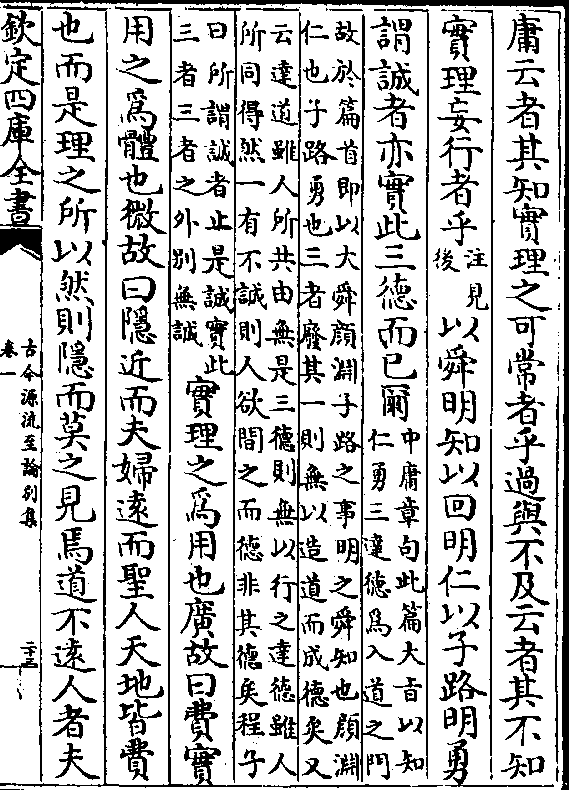 庸云者其知實理之可常者乎過與不及云者其不知
實理妄行者乎註見後以舜明知以回明仁以子路明勇
謂誠者亦實此三德而已爾中庸章句此篇大旨以知
仁勇三達德爲入道之門
故於篇首即以大舜顔淵子路之事明之舜知也顔淵
仁也子路勇也三者廢其一則無以造道而成德矣又
云達道雖人所共由無是三德則無以行之達德雖人
所同得然一有不誠則人欲間之而德非其德矣程子
曰所謂誠者止是誠實此
三者三者之外别無誠
實理之爲用也廣故曰費實
用之爲體也微故曰隱近而夫婦遠而聖人天地皆費
也而是理之所以然則隱而莫之見焉道不遠人者夫
欽定四庫全書
古今源流至論别集
卷一
二十三